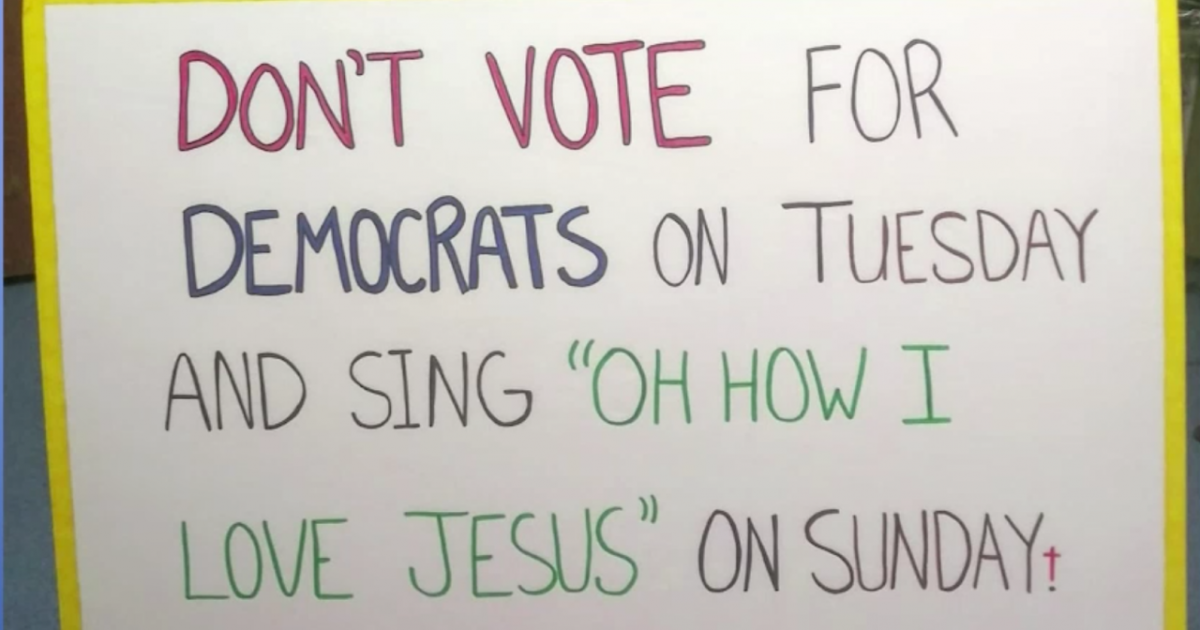 DON'T VOTE FOR
DEMOCRATS ON TUESDAY
AND SING "OH HOW I
LOVE JESUS" ON SUNDAY!